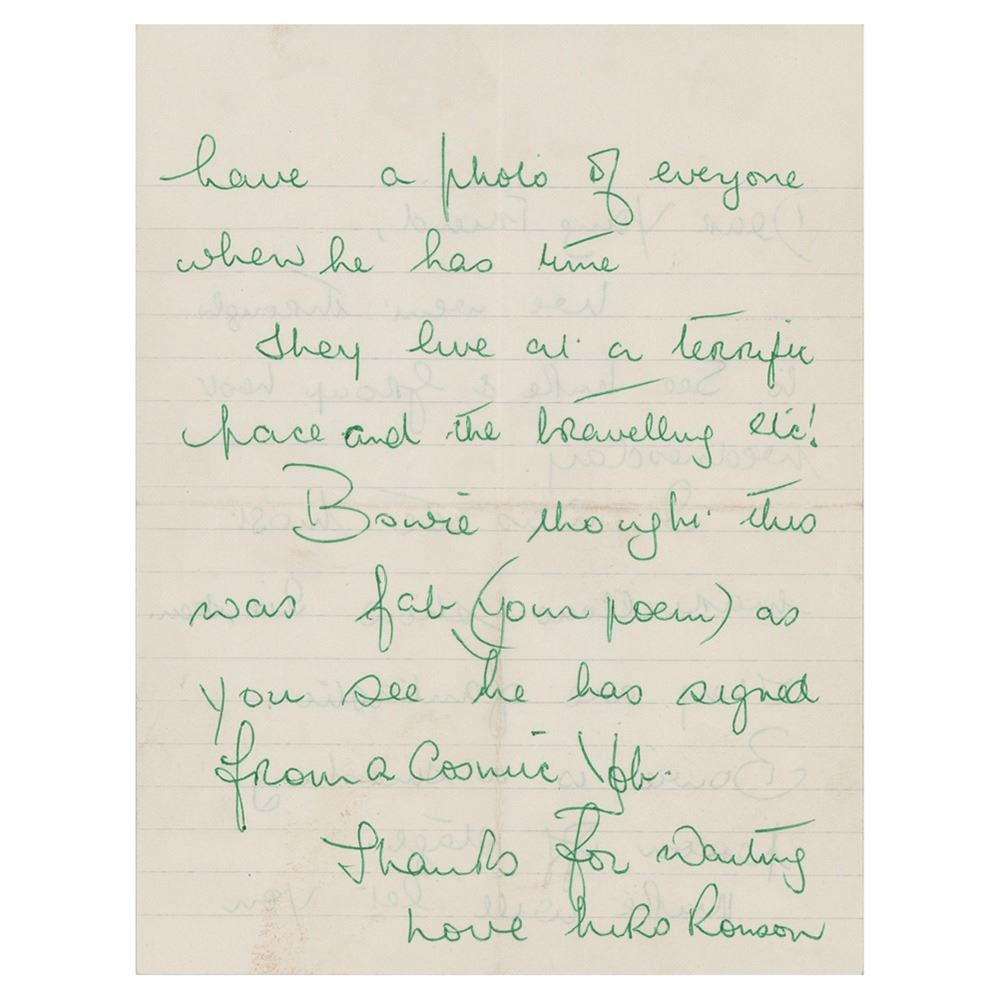 have a photo of everyone
when he has time
They live at a terrific
pace and the travelling etc!
Bowie thought this
was fab (your poem) as
you see he has signed
from a Cosmic Yob.
Thanks for waiting
Love Ronson